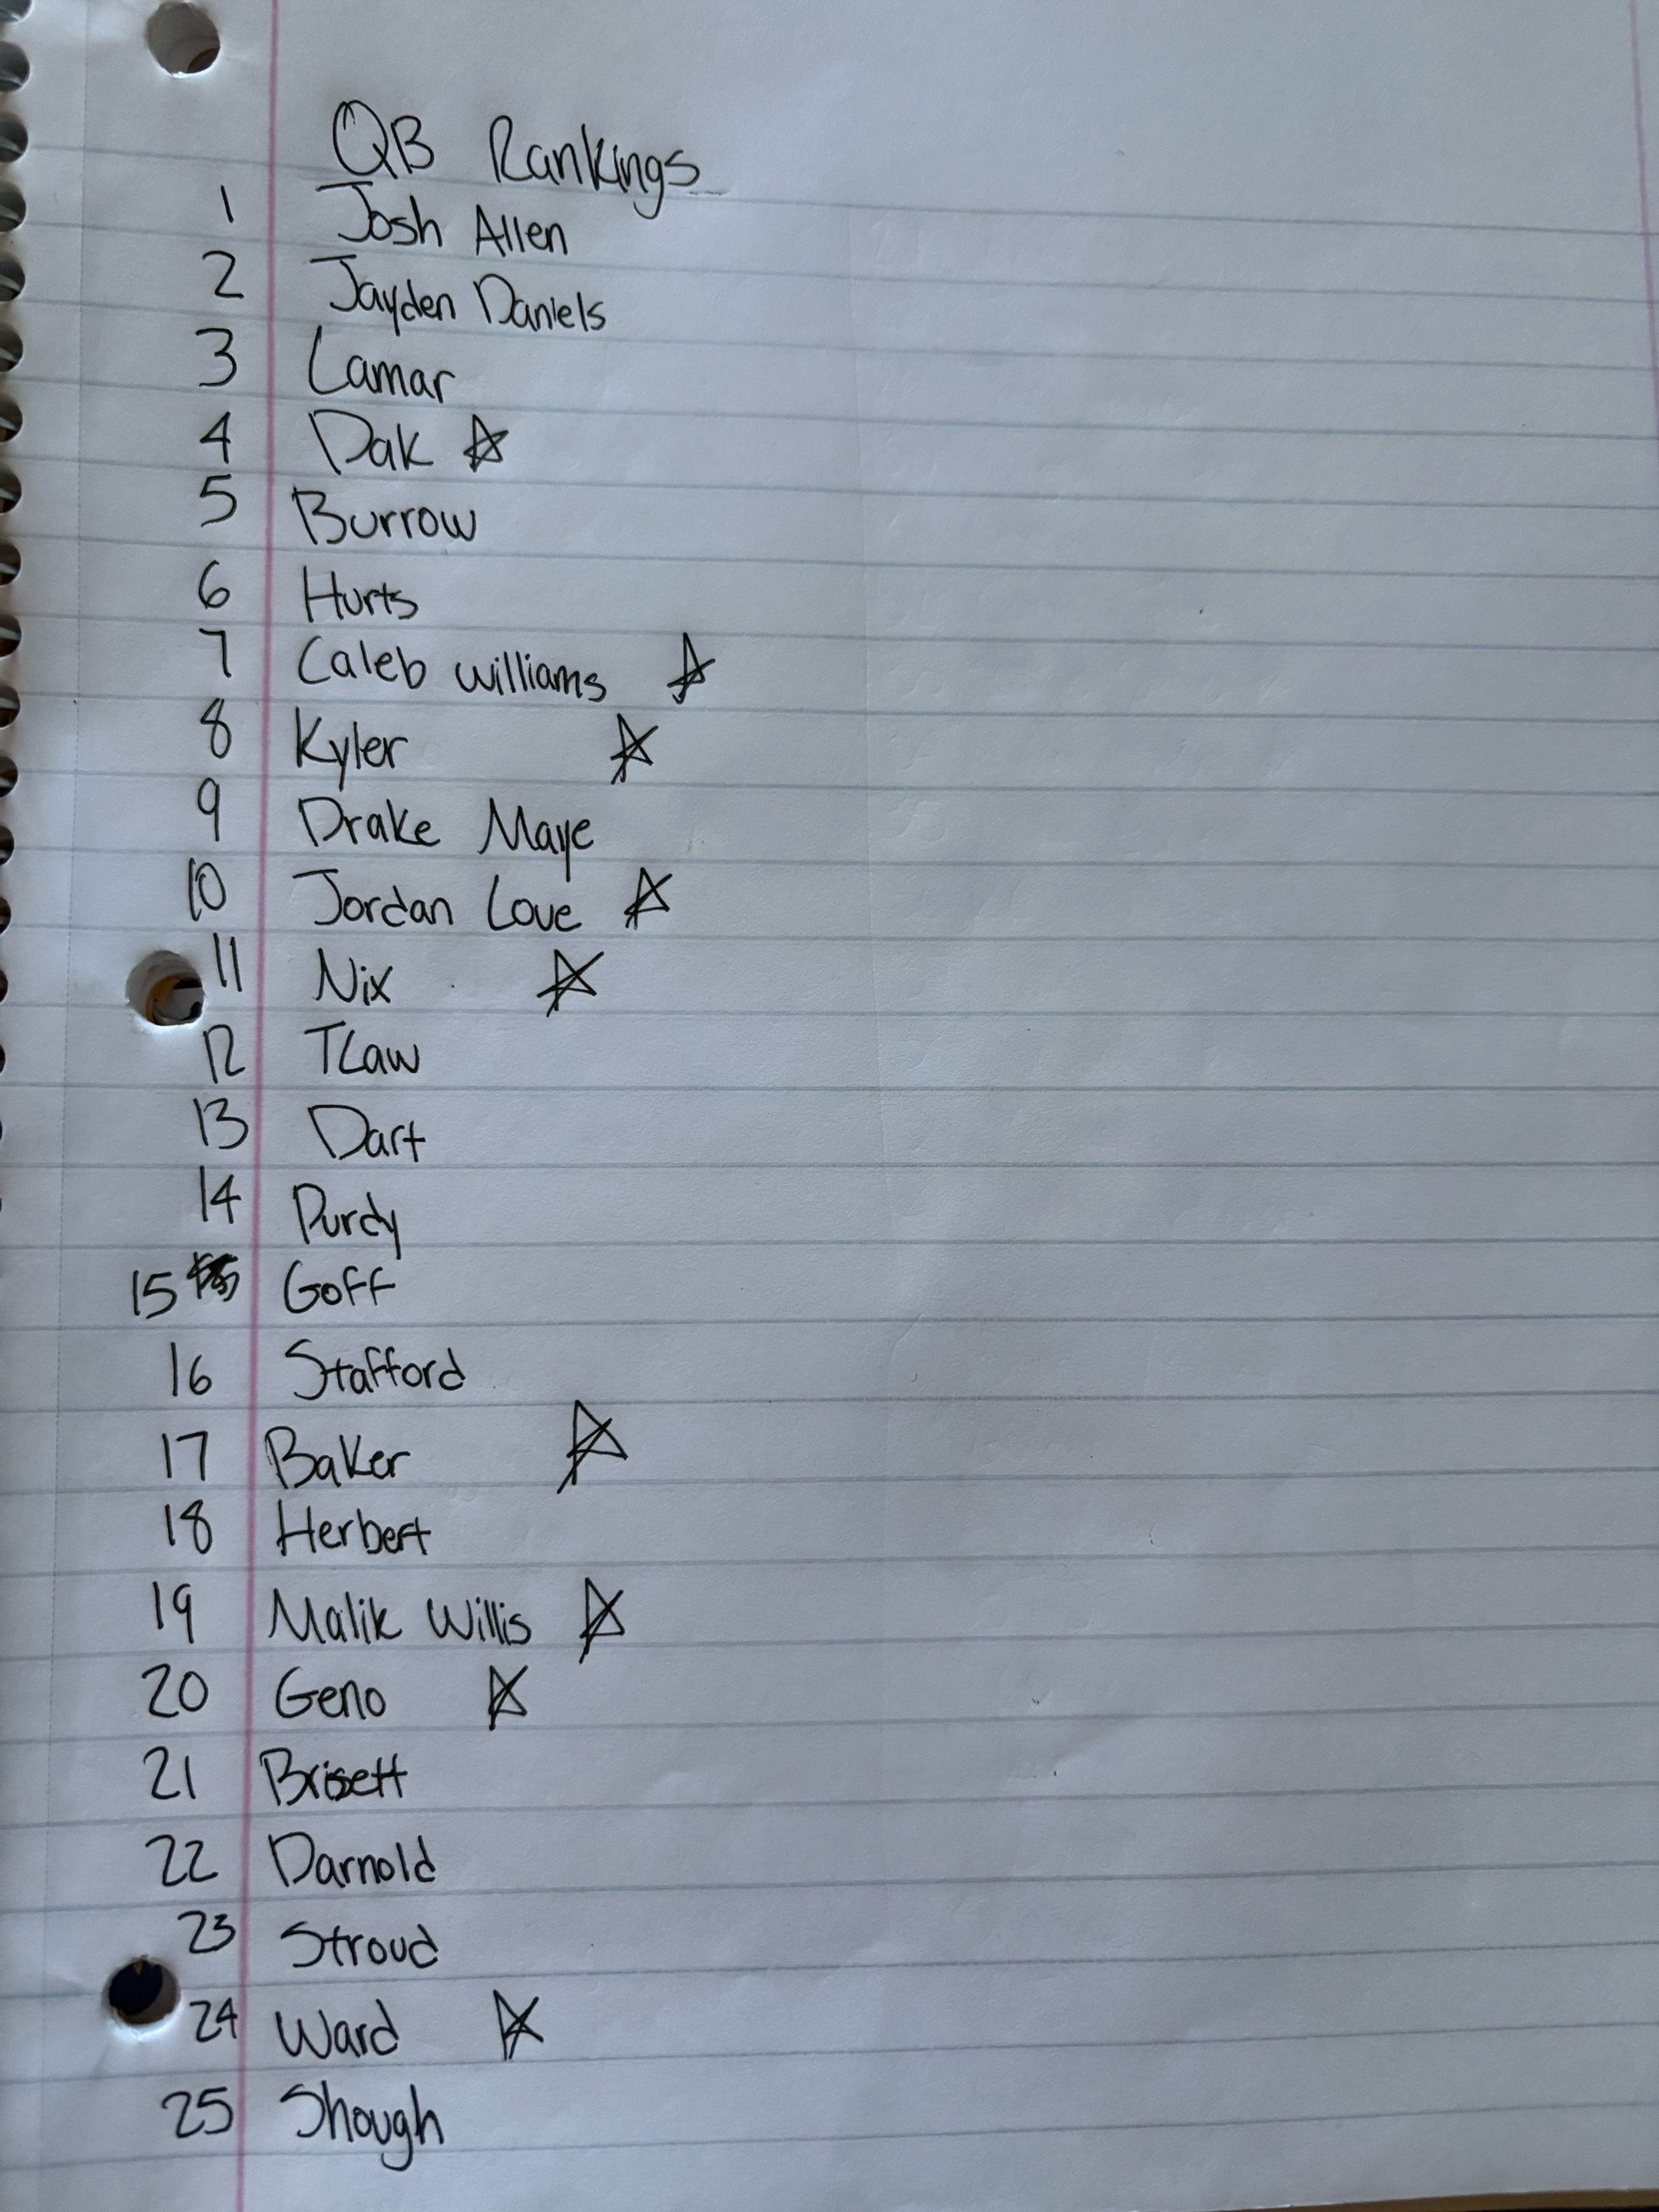 QB Rankings
1 Josh Allen
2 Jayden Daniels
3 Lamar
4 Dak ☆
5 Burrow
6 Hurts
7 Caleb Williams ☆
8 Kyler ☆
9 Drake Maye
10 Jordan Love ☆
11 Nix ☆
12 TLaw
13 Dart
14 Purdy
15 Goff
16 Stafford
17 Baker ☆
18 Herbert
19 Malik Willis ☆
20 Geno ☆
21 Brisett
22 Darnold
23 Stroud
24 Ward ☆
25 Shough